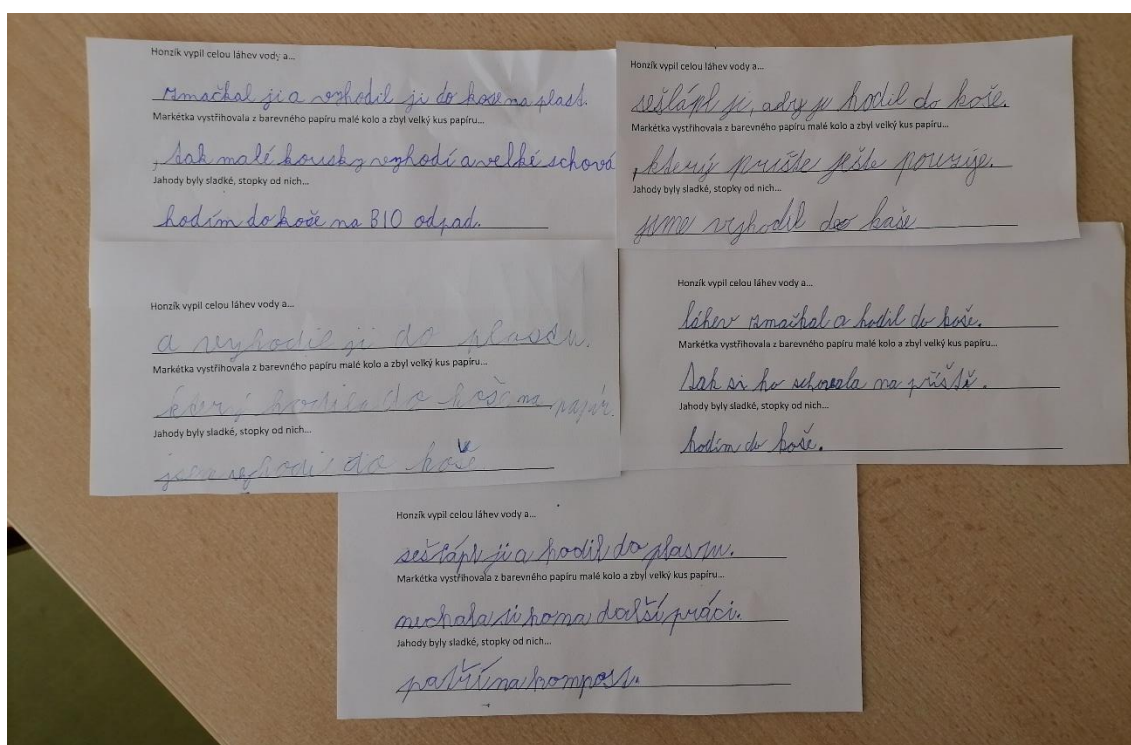 Honzík vypil celou láhev vody a...
zmačkal ji a vyhodil ji do koše na plast.
Markétka vystřihovala z barevného papíru malé kolo a zbyl velký kus papíru...
, tak malé kousky vyhodí a velké schová
Jahody byly sladké, stopky od nich...
hodím do koše na BIO odpad.
Honzík vypil celou láhev vody a...
sešlápl ji, aby ji hodil do koše.
Markétka vystřihovala z barevného papíru malé kolo a zbyl velký kus papíru...
, který příště ještě použije.
Jahody byly sladké, stopky od nich...
jsme vyhodil do koše
Honzík vypil celou láhev vody a...
a vyhodil ji do plastu.
Markétka vystřihovala z barevného papíru malé kolo a zbyl velký kus papíru...
který hodila do koše na papír.
Jahody byly sladké, stopky od nich...
jsme vyhodil do koše
Honzík vypil celou láhev vody a...
láhev zmačkal a hodil do koše.
Markétka vystřihovala z barevného papíru malé kolo a zbyl velký kus papíru...
tak si ho schovala na příště.
Jahody byly sladké, stopky od nich...
hodím do koše.
Honzík vypil celou láhev vody a...
sešlápl ji a hodil do plastu.
Markétka vystřihovala z barevného papíru malé kolo a zbyl velký kus papíru...
nechala si ho na další práci.
Jahody byly sladké, stopky od nich...
patří na kompost.